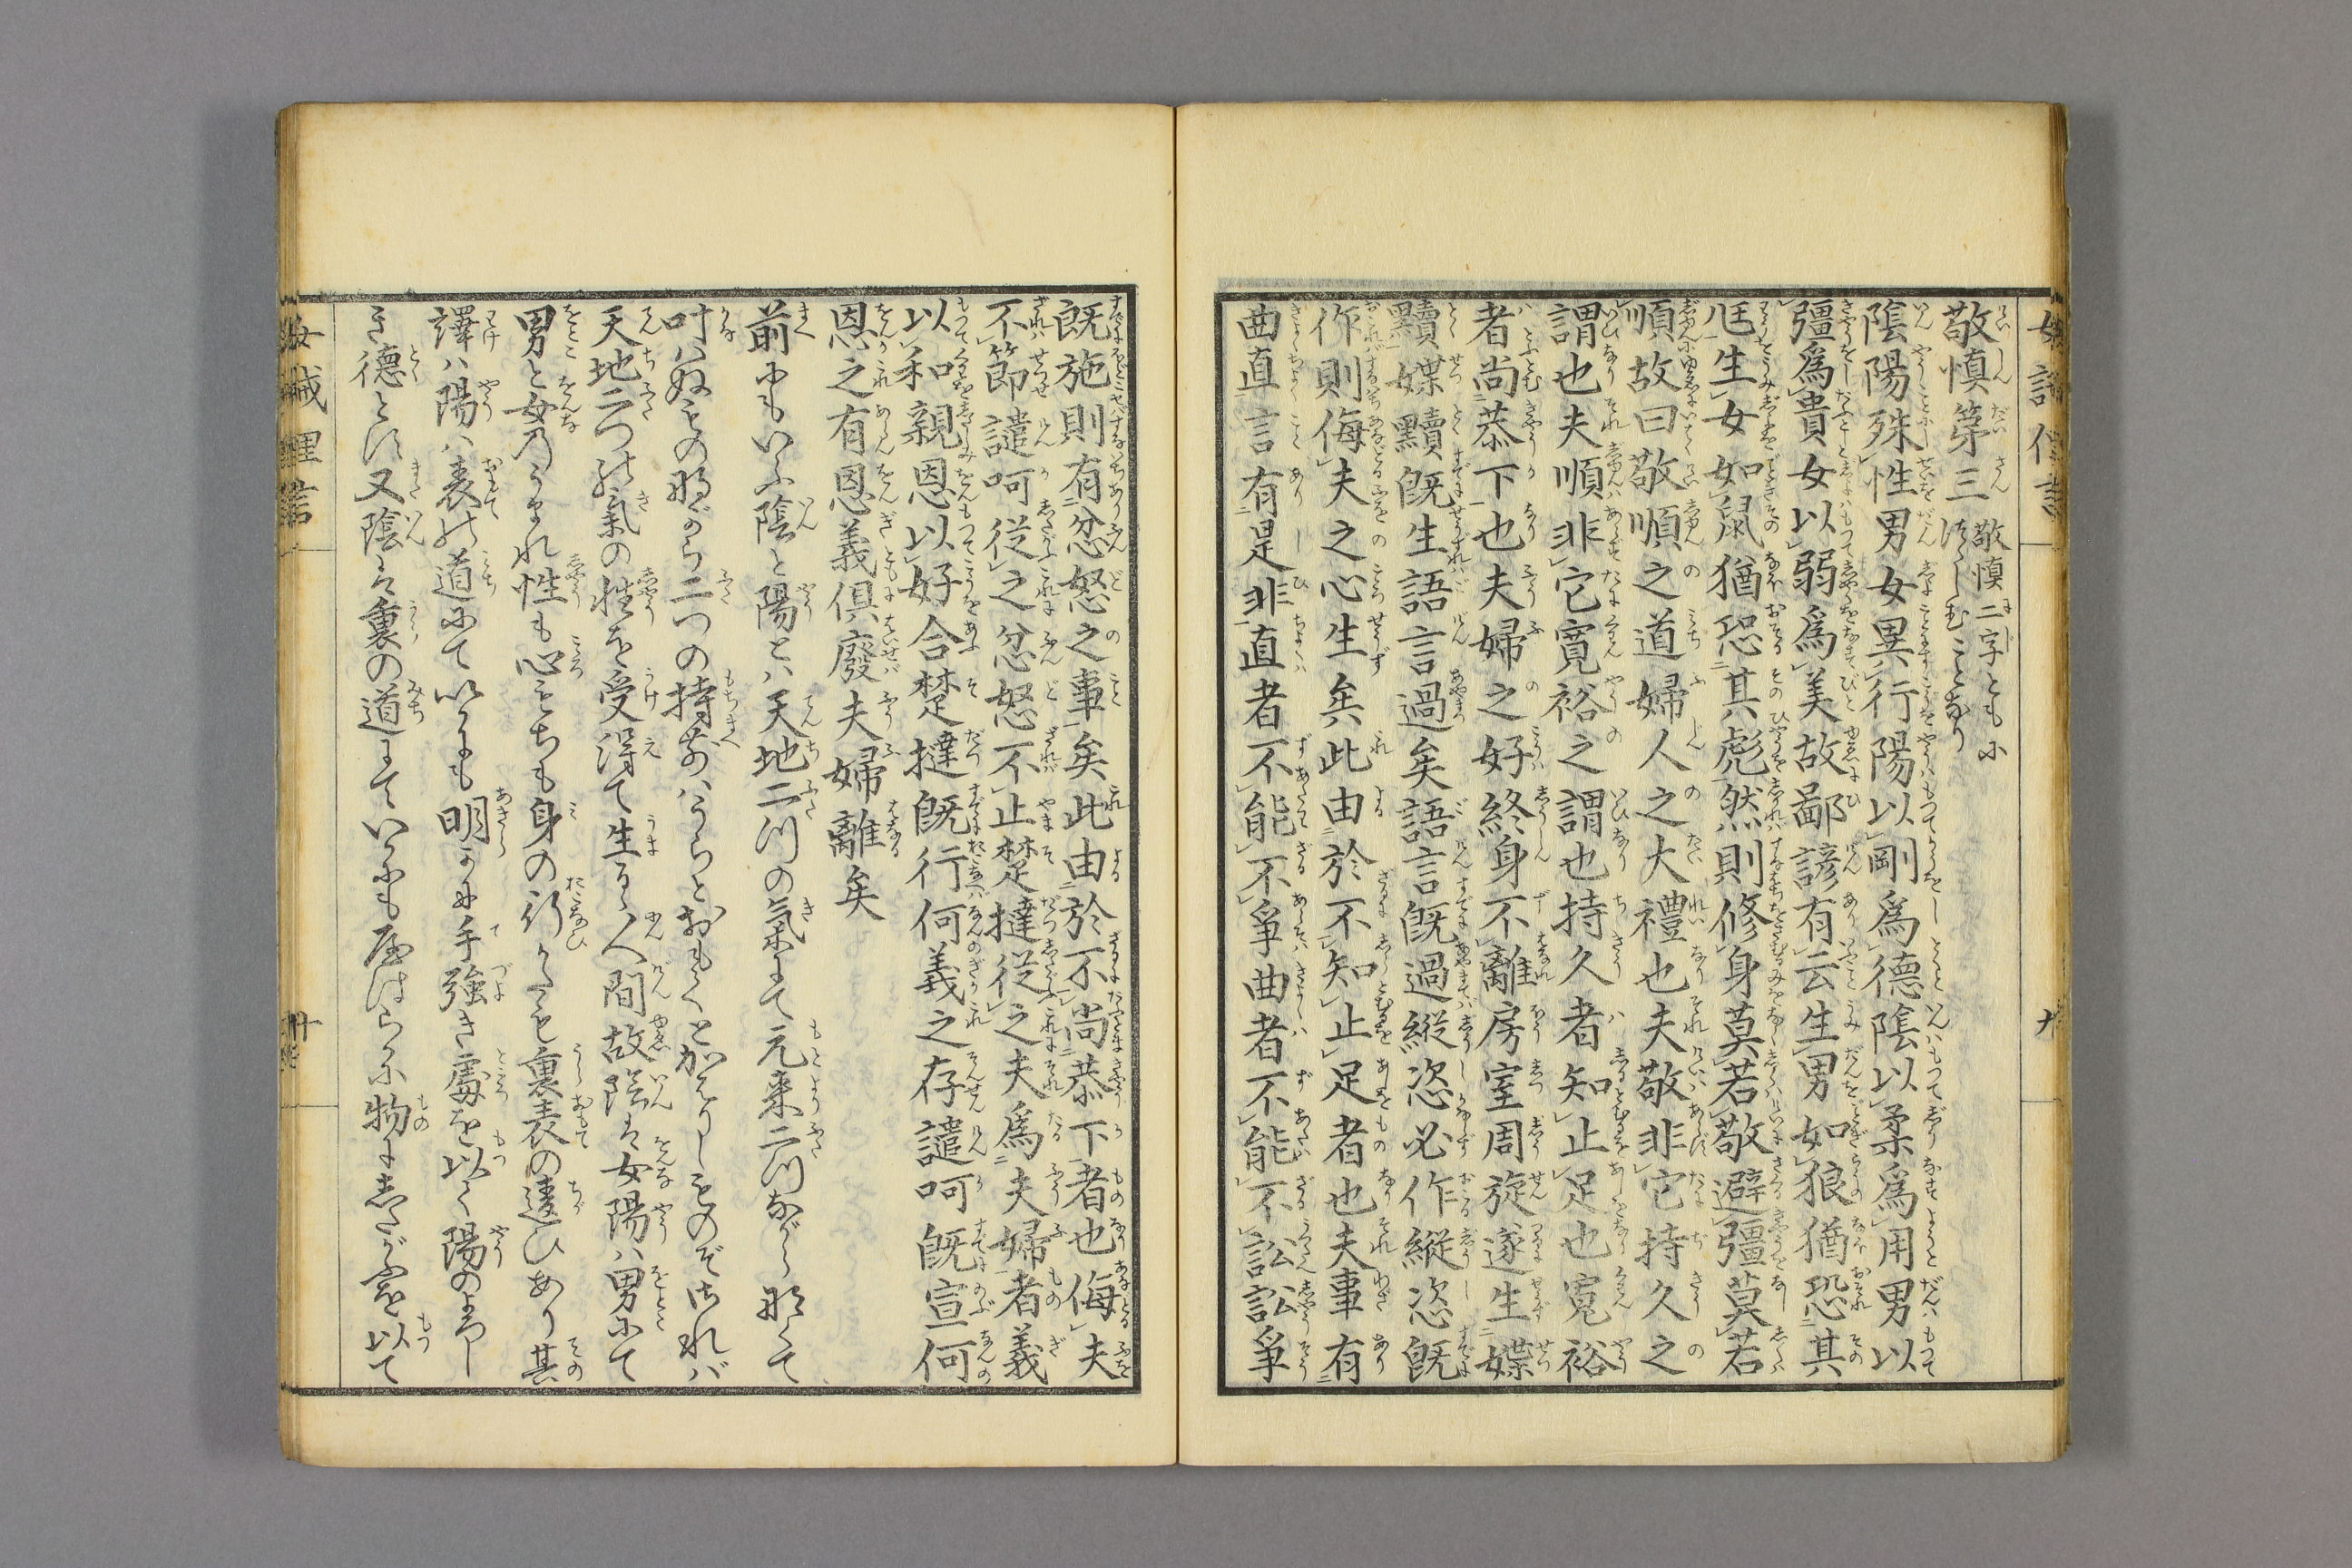 敬慎第三 敬慎二字ともに
つゝしむことなり
陰陽殊性男女異行陽以剛爲德陰以柔爲用男以
彊爲貴女以弱爲美故鄙諺有云生男如狼猶恐其
尪生女如鼠猶恐其彪然則修身莫若敬避彊莫若
順故曰敬順之道婦人之大禮也夫敬非它持久之
謂也夫順非它寛裕之謂也持久者知止足也寛裕
者尚恭下也夫婦之好終身不離房室周旋遂生媟
黷媟黷既生語言過矣語言既過縦恣必作縦恣既
作則侮夫之心生矣此由於不知止足者也夫事有
曲直言有是非直者不能不爭曲者不能不訟訟爭
既施則有忿怒之事矣此由於不尚恭下者也侮夫
不節譴呵從之忿怒不止楚撻從之夫爲夫婦者義
以和親恩以好合楚撻既行何義之存譴呵既宣何
恩之有恩義倶廢夫婦離矣
前にもいふ陰と陽とハ天地二つの氣にて元来二つながら那くて
叶ハぬもの那がら二つの持前ハうらとおもてとがはりしものぞされバ
天地二つの氣の性を受得て生るゝ人間故陰は女陽ハ男にて
男と女のうまれ性も心もちも身の行かたも裏表の違ひあり其
譯ハ陽ハ表の道にていかにも明かに手強き處を以て陽のよろし
き德とす又陰は裏の道にていかにもやはらかに物にしたがふを以て
女誡俚言
十
九